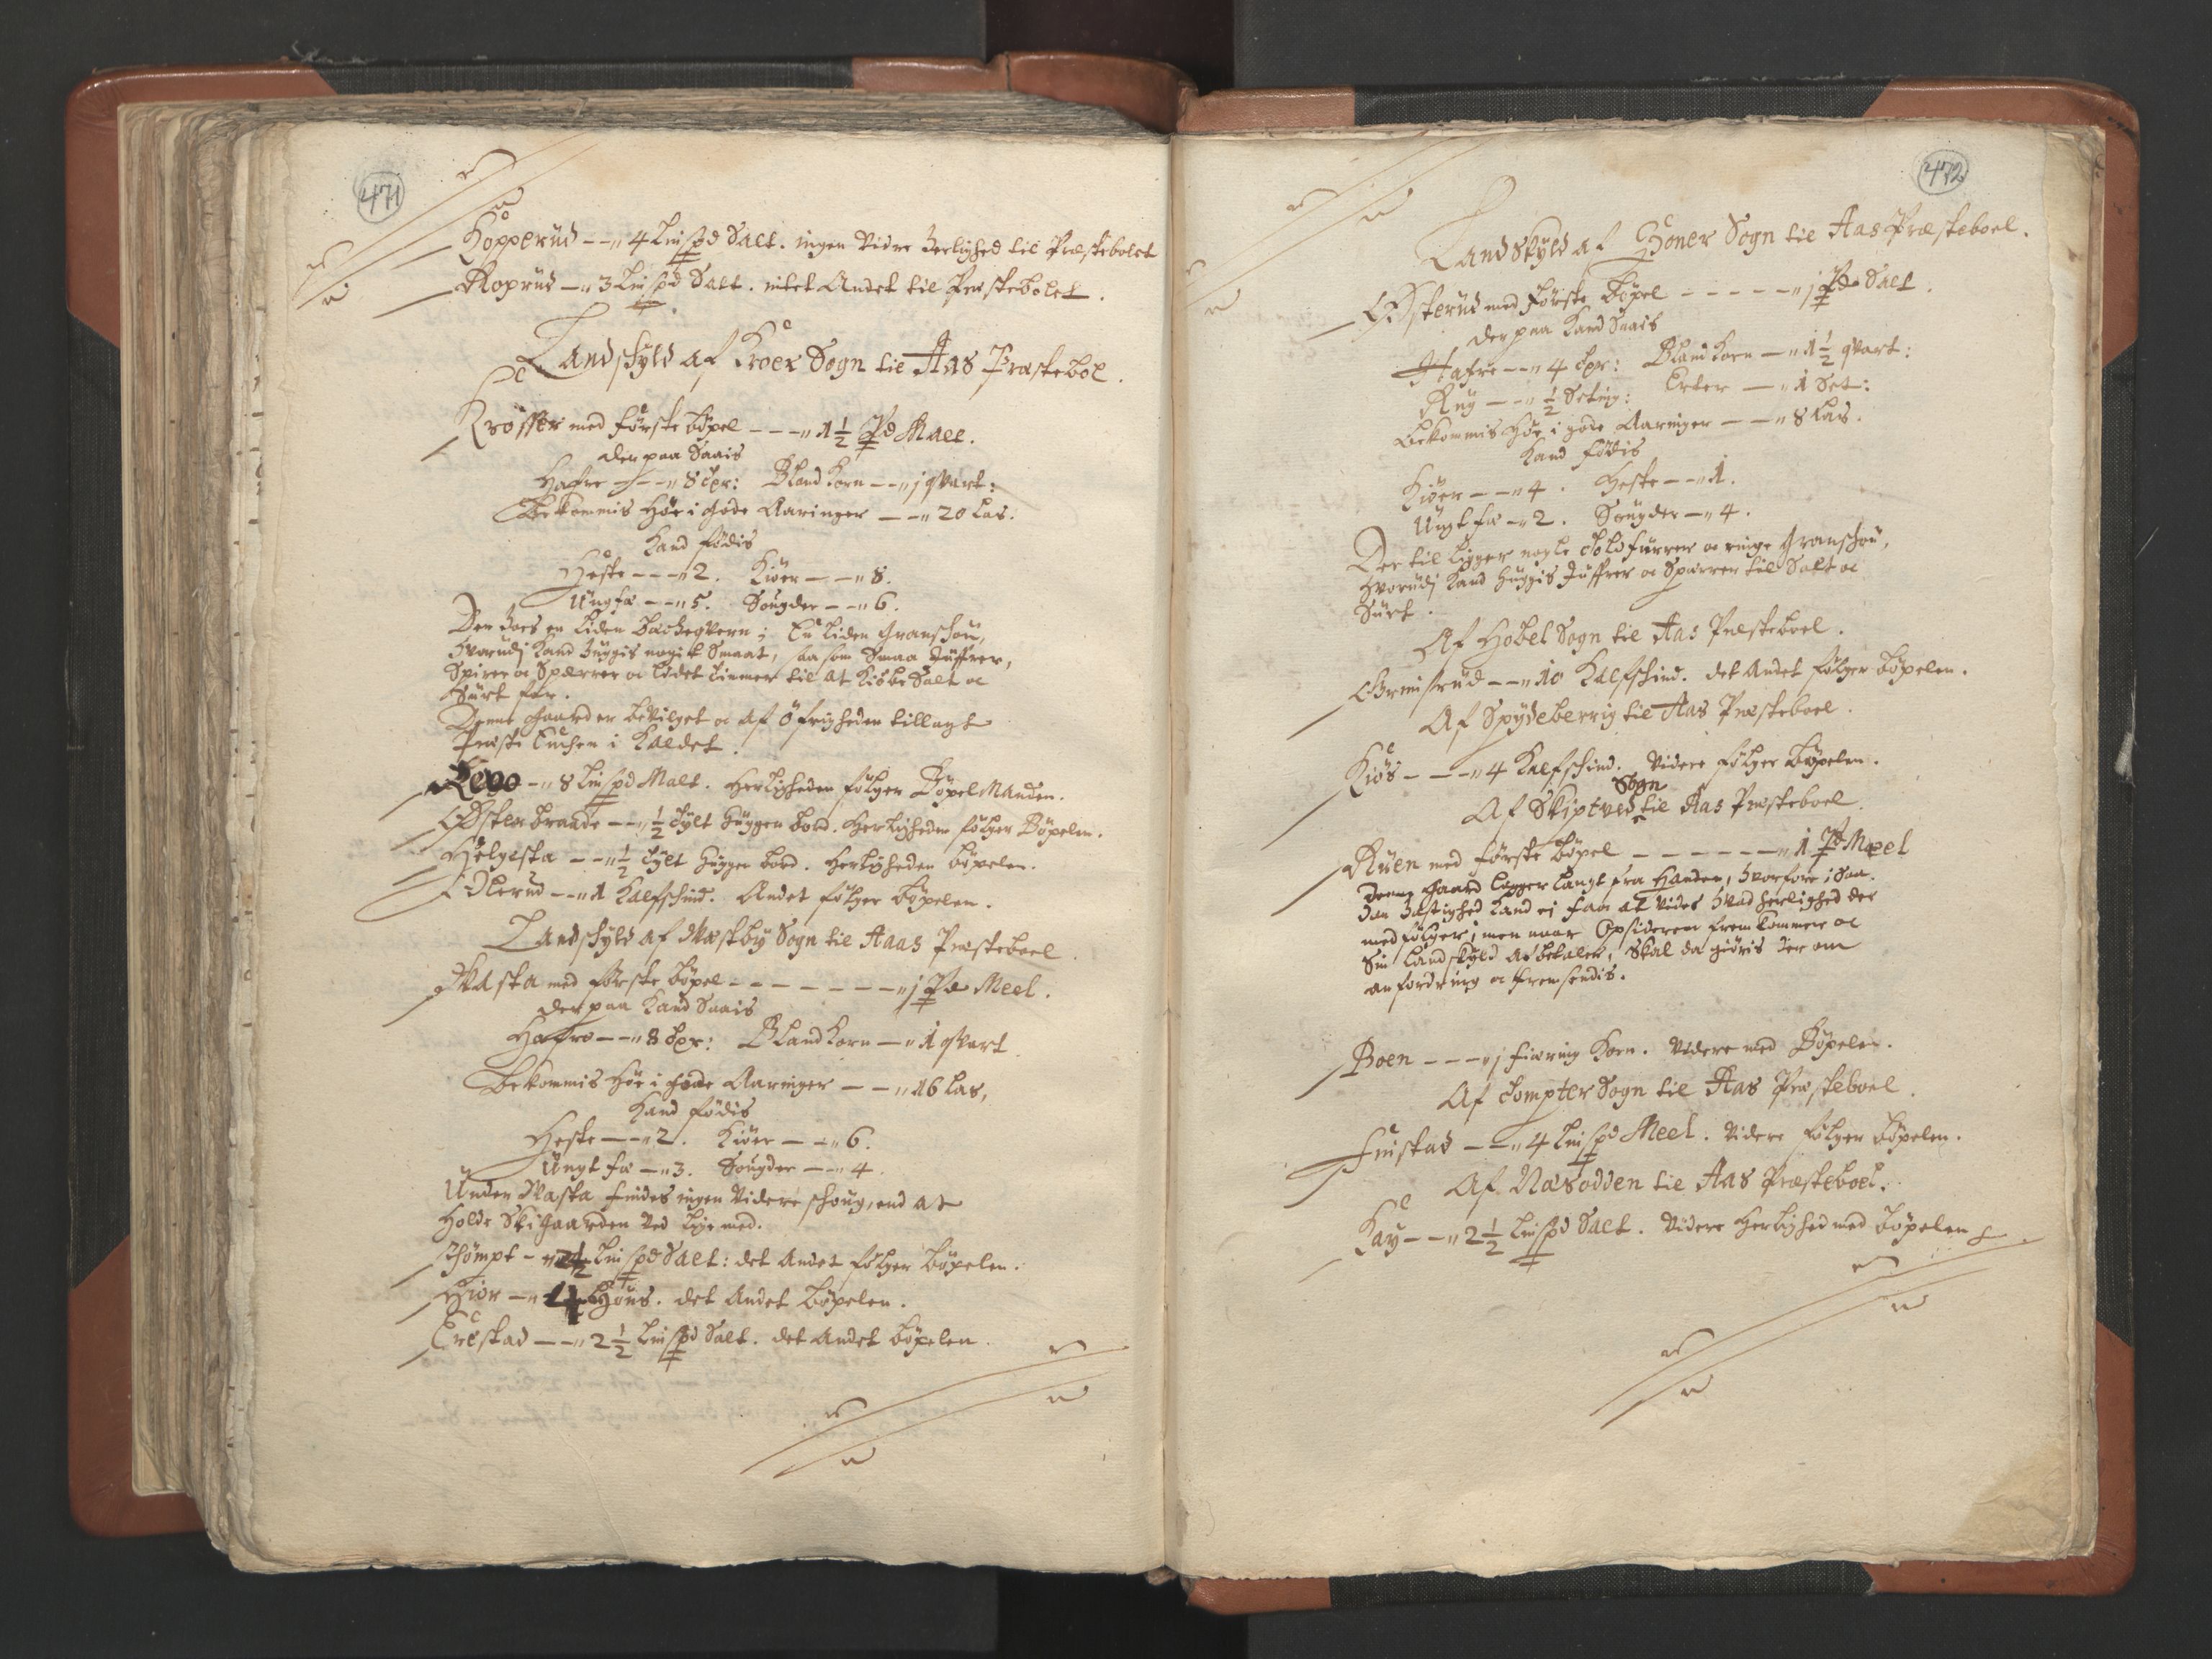 471
Kopperud --" 4 Lispd Salt. ingen Videre herlighed til Præstebolet
Roprud --" 3 Lispd Salt. intet Andet til Præstebolet.
Landskyld af Kroer Sogn til Aas Præstebol.
Krosser med første böpel ---" 1½ Pd Malt.
der paa Saais
Hafre ---" 8 tdr: Bland Korn --" j qvart:
Bekommis Høe i gode Aaringer --" 20 Las.
Kand fødis
Heste ---" 2. Kiöer ---" 8.
Ungfæ --" 5. Sougder --" 6.
Der hoes en liden becheqvern; En liden Granschou,
hvorudj Kand huggis nogit Smaat, saa som Smaa Juffrer,
Spirer oc Sperrer oc lidet timmer til at Kiöbe Salt oc
Surt for.
Denne Gaard er bevilget oc af Öfrigheden tillagt
Præste Enchen i Kaldet.
--" 8 Lispd Malt. Herligheden følger Böpel Manden.
Østerbraade --" ½ tylt huggen bord. Herligheden følger Böpelen.
Helgesta --" ½ tylt huggen bord. Herligheden böpelen.
Idlerud --" 1 Kalfschind. Andet følger böpelen.
Landschyld af Næstby Sogn til Aaas Præsteboel.
Wasta med første böpel -------" j Pd Meel.
der paa Kand Saais
Hafre --" 8 tdr: Bland Korn --" 1 qvart
Bekommis Høe i gode Aaringer --" 16 Las,
Kand fødis
Heste --" 2. Kiöer ---" 6.
Ungt fæ --" 3. Sougder --" 4.
Under Wasta findes ingen Videre schoug, end at
Holde Skigaarden ved lige med.
Schömpt --" 2½ Lispd Salt: det Andet følger böpelen.
--" 4 Huus. det Andet böpelen.
Erestad --" 2½ Lispd Salt. det Andet böpelen.
472
Landskyld af Soner Sogn til Aas Præsteboel.
Østerud med første böpel -----" j Pd Salt.
der paa Kand Saais
Hafre --" 4 tdr: Bland Korn --" 1½ qvart:
Rug --" ½ Seting: Erter --" 1 Set:
Bekommis Høe i gode Aaringer --" 8 Las.
Kand fødis
Kiöer --" 4. Heste --" 1.
Ungt fæ --" 2. Sougder --" 4.
Der til ligger nogle tolv furrer oc ringe Granschou,
hvorudj Kand huggis Juffrer oc Sparrer til Salt oc
Surt.
Af Hobel Sogn til Aas Præsteboel.
Grimsrud --" 10 Kalfschind. det Andet følger böpelen.
Af Spydeberrig til Aas Præsteboel.
Kiös ---" 4 Kalfschind. Videre følger Böpelen.
Sogn
Af Skiptved til Aas Præsteboel.
Ruen med første böpel -------" 1 Pd Meel
Denne Gaard ligger langt fra Handen, hvorfore i saa-
dan hastighed Kand ej faa at vides hvad herlighed der
med følger; men naar Opsidderen frem kommer oc
Sin landskyld at betale, Skal da giöris der om
anfordring oc fremsendis.
Boen ---" j fiering Korn. Videre med Böpelen.
Af Tompter Sogn til Aas Præsteboel.
Finstad ---" 4 Lispd Meel. Videre følger böpelen.
Af Næsodden til Aas Præsteboel.
Kay --" 2½ Lispd Salt. Videre Herlighed med böpelen